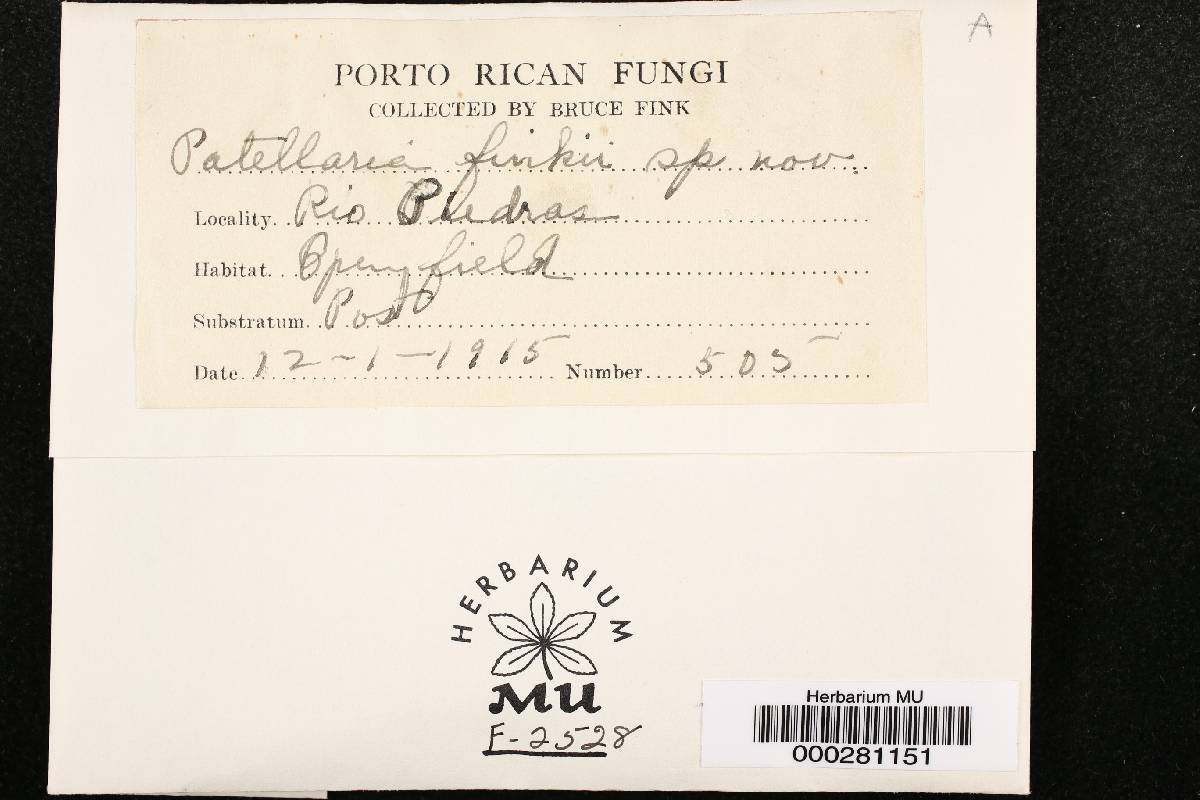 A
PORTO RICAN FUNGI
COLLECTED BY BRUCE FINK
Patellaria finkii sp nov.
Locality Rio Piedras
Habitat Open field
Substratum Post
Date 12-1-1915 Number 505
HERBARIUM
MU
F-2528
Herbarium MU
000281151